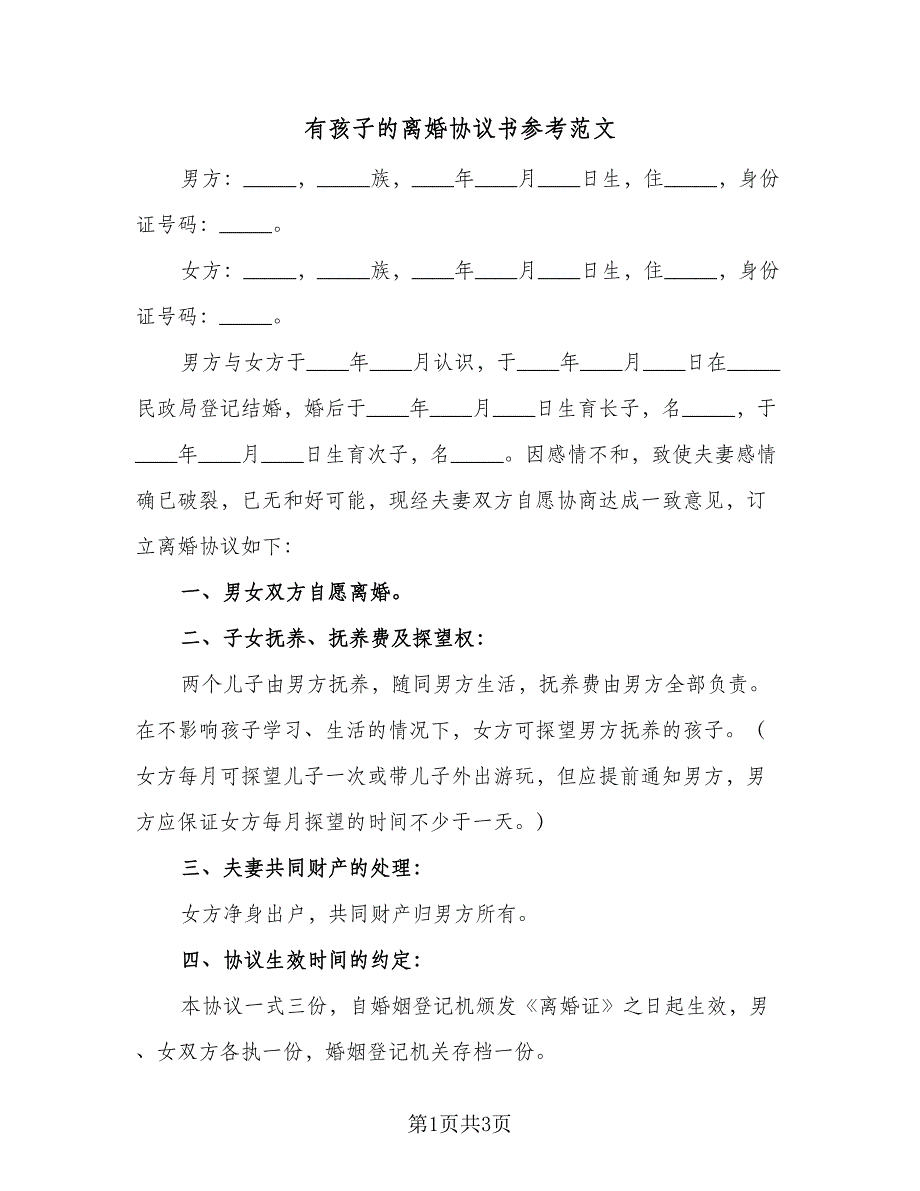 有孩子的离婚协议书参考范文
男方：_____，_____族，____年____月____日生，住_____，身份
证号码：_____。
女方：_____，_____族，____年____月____日生，住_____，身份
证号码：_____。
男方与女方于____年____月认识，于____年____月____日在_____
民政局登记结婚，婚后于____年____月____日生育长子，名_____，于
____年____月____日生育次子，名_____。因感情不和，致使夫妻感情
确已破裂，已无和好可能，现经夫妻双方自愿协商达成一致意见，订
立离婚协议如下：
一、男女双方自愿离婚。
二、子女抚养、抚养费及探望权：
两个儿子由男方抚养，随同男方生活，抚养费由男方全部负责。
在不影响孩子学习、生活的情况下，女方可探望男方抚养的孩子。（
女方每月可探望儿子一次或带儿子外出游玩，但应提前通知男方，男
方应保证女方每月探望的时间不少于一天。）
三、夫妻共同财产的处理：
女方净身出户，共同财产归男方所有。
四、协议生效时间的约定：
本协议一式三份，自婚姻登记机颁发《离婚证》之日起生效，男
、女双方各执一份，婚姻登记机关存档一份。
第1页共3页